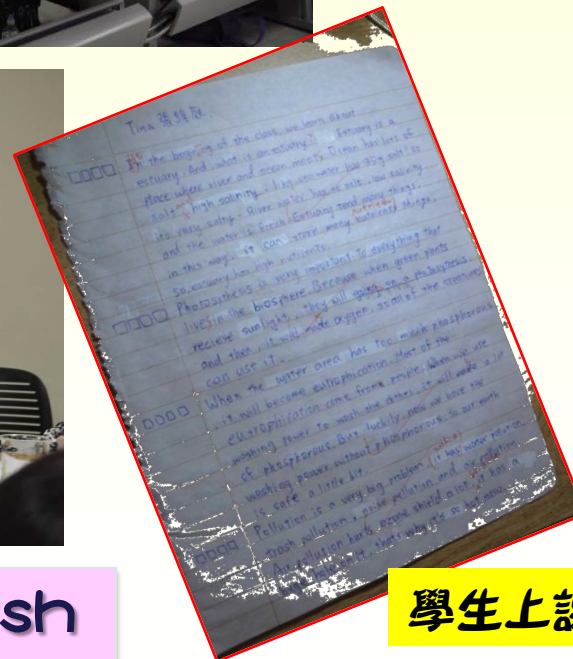 Tina 張雅庭
In the begining of the class, we learn about
estuary. And what is an estuary? Estuary is a
place where river and ocean meets. Ocean has lots of
salt and high salinity. 1 kg sea water has 35g salt! so
its very salty. River water has no salt, low salinity
and the water is fresh. Estuary tend many things,
in this way, it can store many nutrients things,
so estuary has high nutrients.
Photosthesis is very important to everything that
lives in the biosphere. Because when green pants
recieve sunlight, they will
and then, it will made oxygen, so all of the creatures
can use it.
When the water area has too much phosphorous
, it will become eutrophication. Most of the
eutrophication come from people. When we use
washing power to wash the clothes, it will made a lot
of phosphorous. But luckily, now we have the
washing power without phosphorous, so our earth
is safe a little bit.
Pollution is a very big problem. it has water pollution,
trash pollution, noise pollution and air pollution
Air pollution hurts ozone shield a lot, it has a
that's why it's so hot now.
sh
學生上